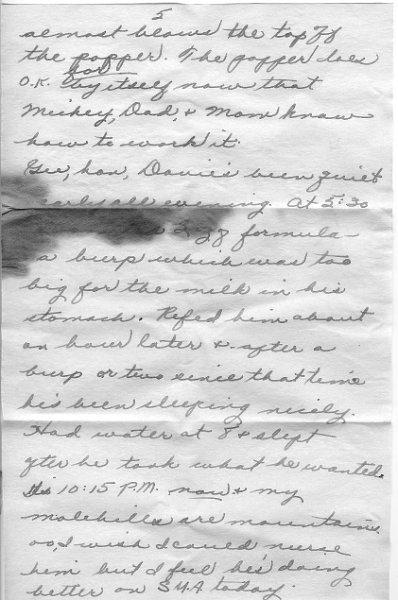 5
almost blows the top off
the popper. The popper does
O.K. for by itself now that
Mickey, Dad, & Mom know
how to work it.
Gee, hon, Davie's been quiet
early all evening. At 5:30
formula -
a burp which was too
big for the milk in his
stomach. Refed him about
an hour later & after a
burp or two since that time
he's been sleeping nicely.
Had water at 8 & slept
after he took what he wanted.
10:15 P.M. now & my
molehills are mountains.
oo, I wish I could nurse
him but I feel he's doing
better on SMA today.